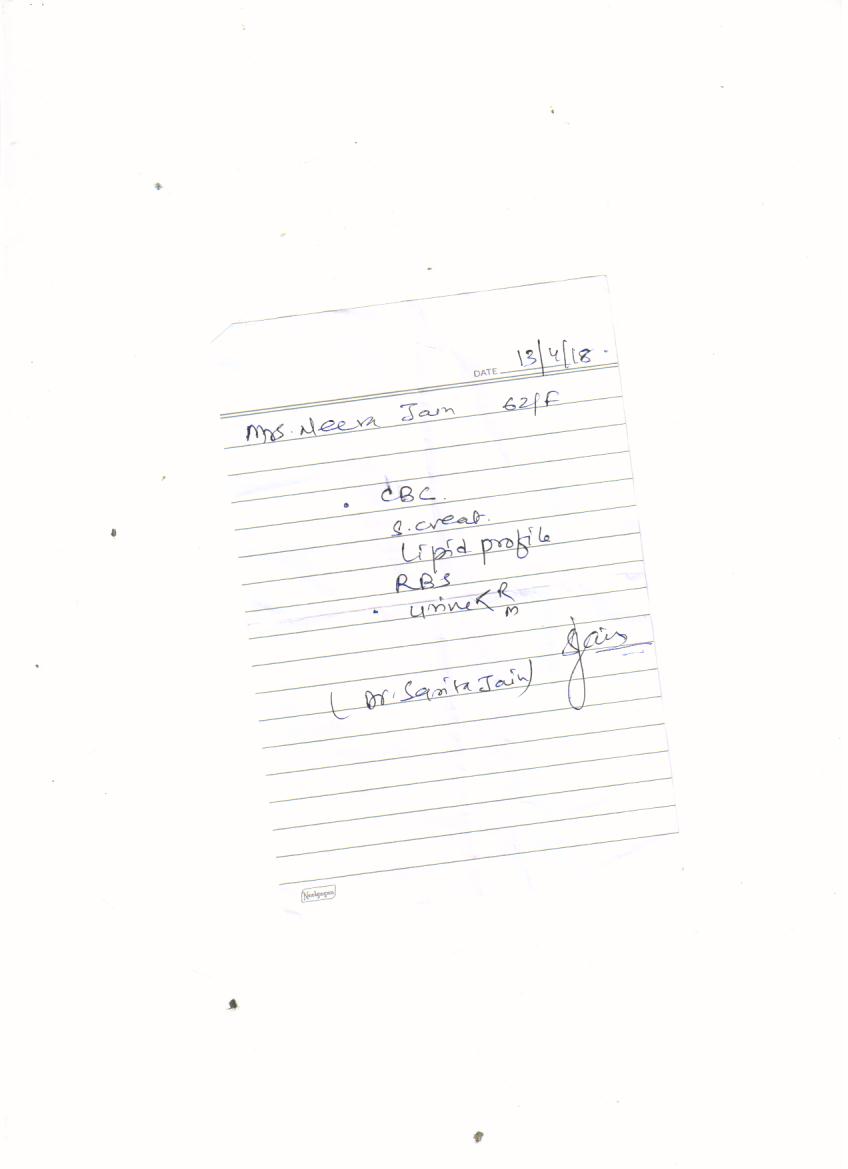 DATE 13/4/18
Mrs. Neera Jain 62/F
• CBC.
S. creat.
Lipid profile
RBS
• Urine < R
M
Jain
(Dr. Sarita Jain)
Neelgagan